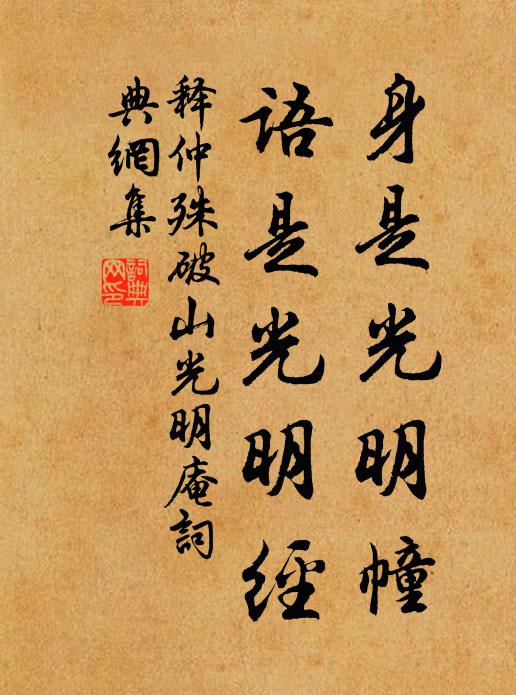 身是光明幢
语是光明经
释仲殊破山光明庵詞
典網集
詞典
网印